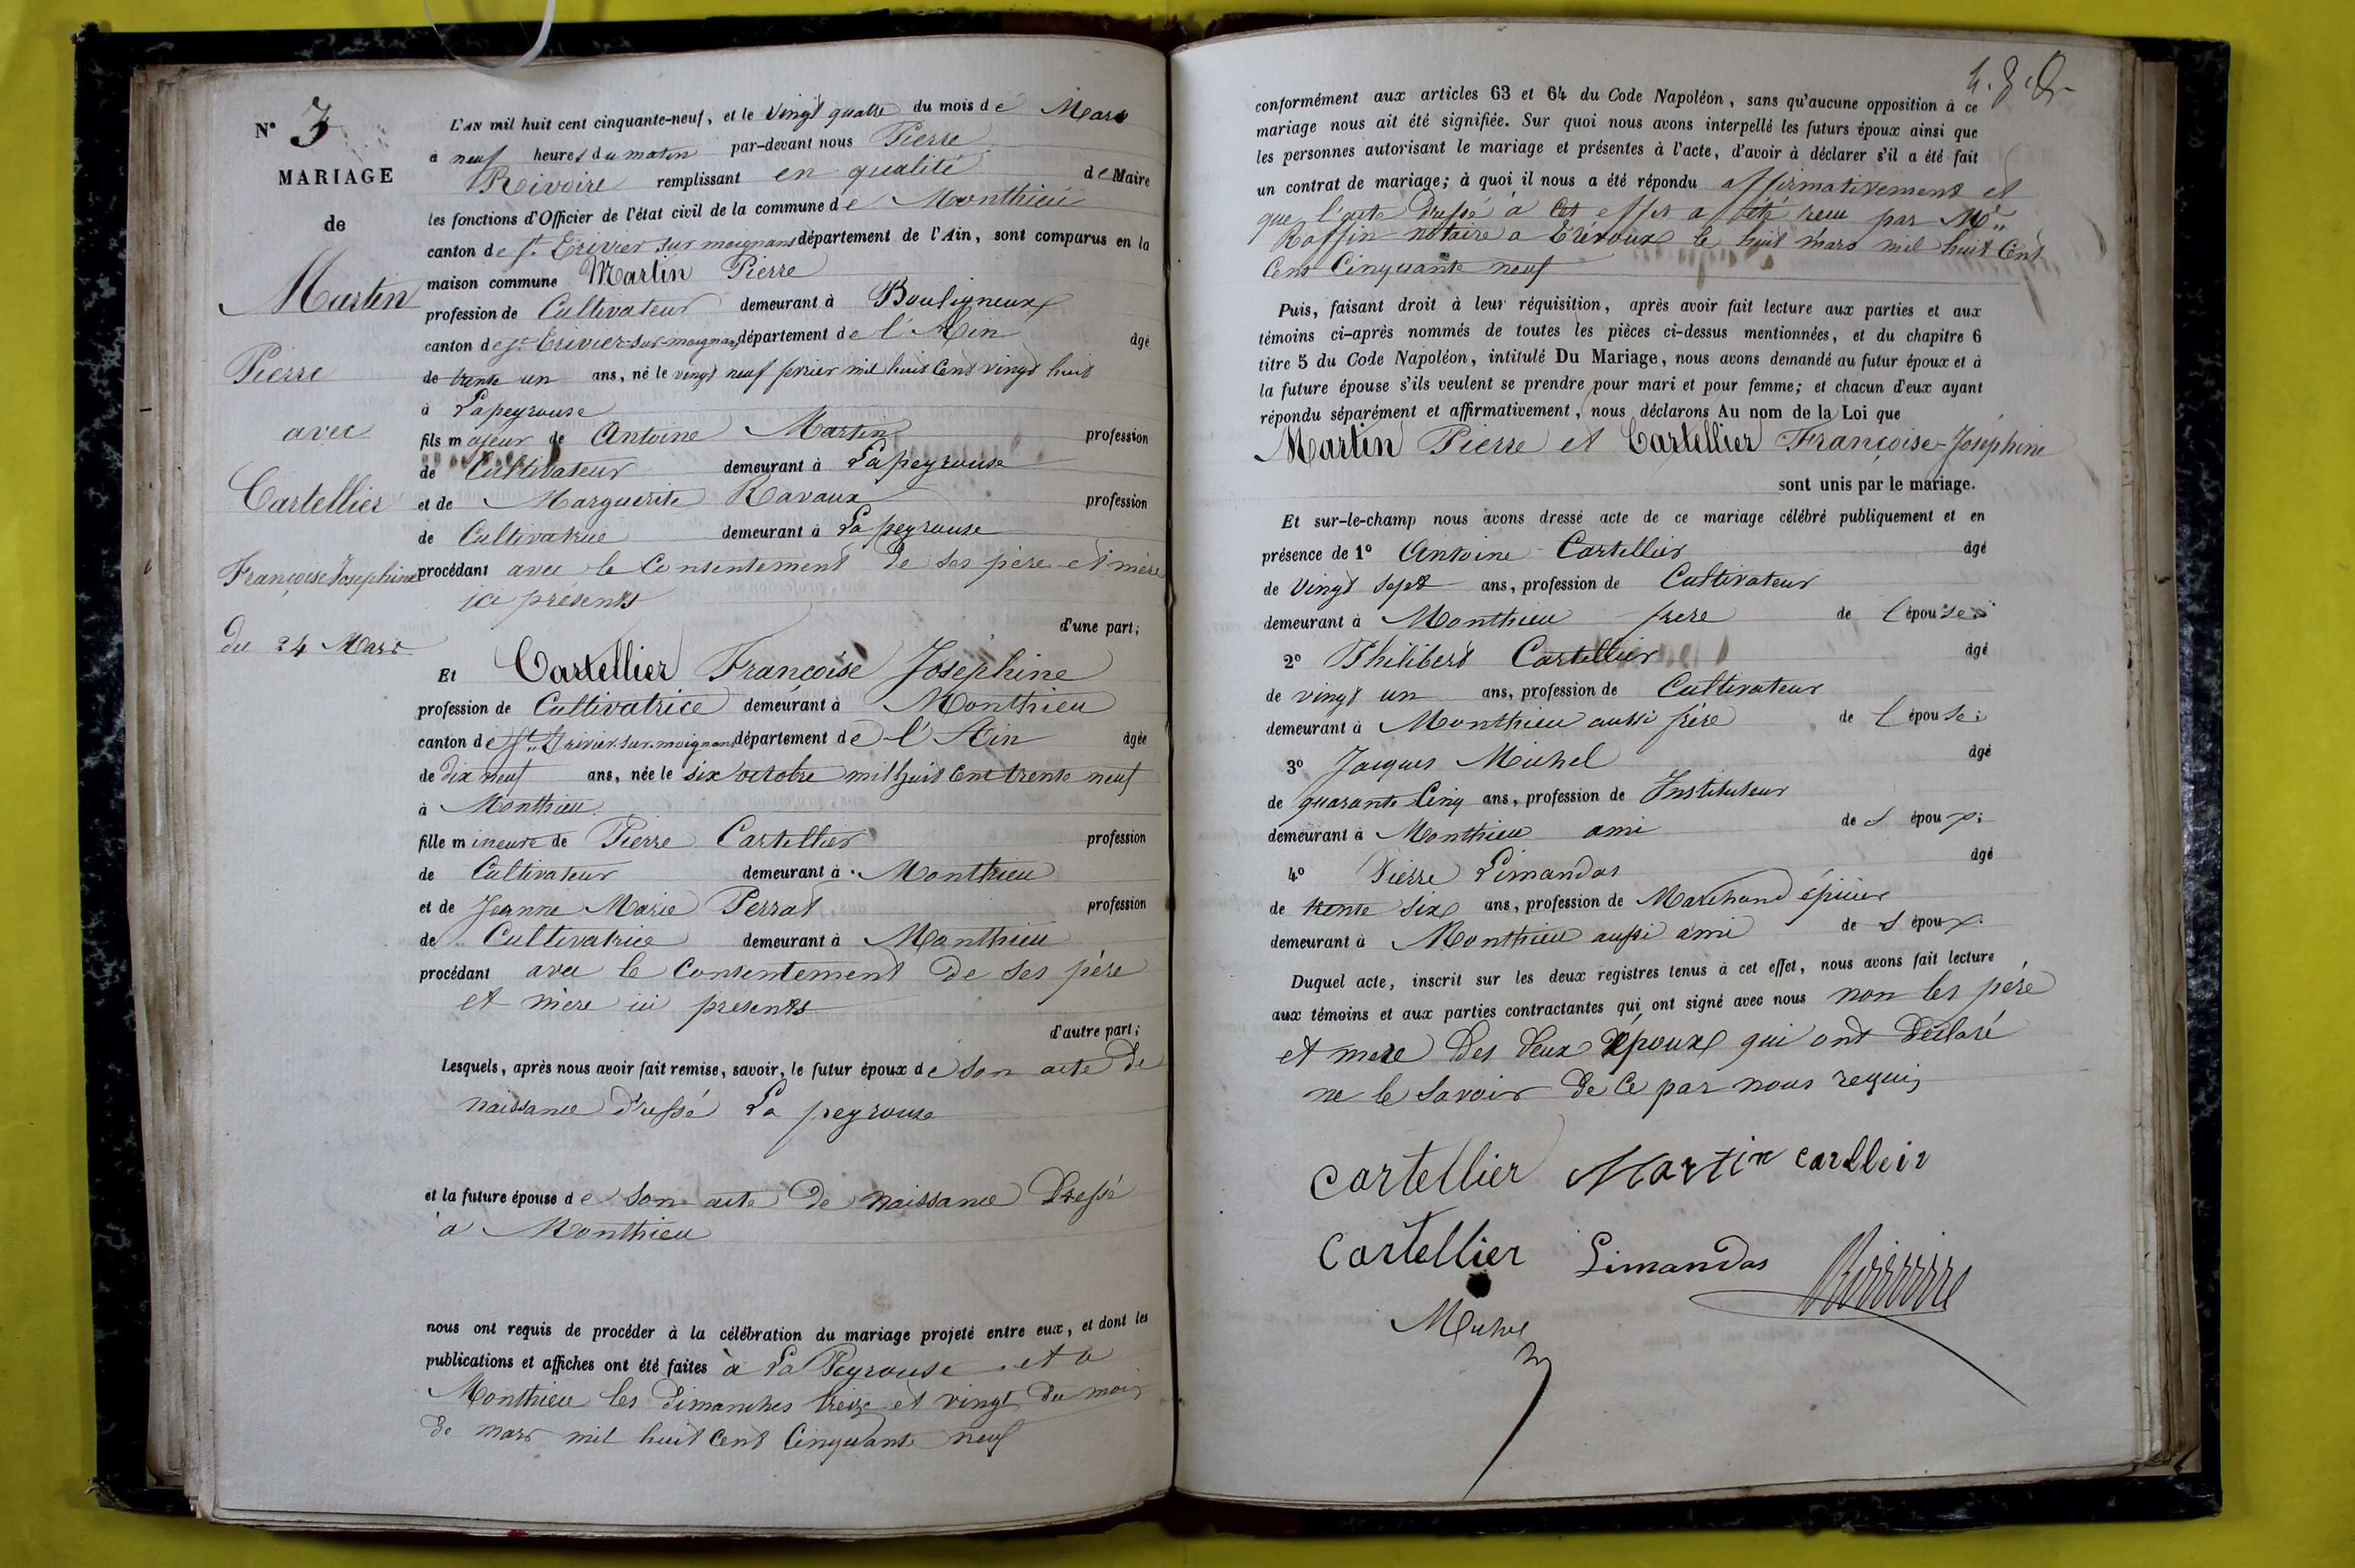 N° 3
MARIAGE
de
Martin
Pierre
avec
Cartellier
Françoise Josephine
du 24 Mars
L'AN mil huit cent cinquante-neuf, et le Vingt quatre du mois de Mars
à neuf heures du matin par-devant nous Pierre
Rivoire remplissant en qualité de Maire
les fonctions d'Officier de l'état civil de la commune de Monthieu
canton de St. Trivier sur moignans département de l'Ain, sont comparus en la
maison commune Martin Pierre
profession de Cultivateur demeurant à Bouligneux
canton de St. Trivier-sur-moignans département de l'Ain âgé
de trente un ans, né le vingt neuf février mil huit Cent vingt huit
à Lapeyrouse
fils majeur de Antoine Martin profession
de Cultivateur demeurant à Lapeyrouse
et de Marguerite Ravaux profession
de Cultivatrice demeurant à La peyrouse
procédant avec le Consentement de ses père et mère
ici présents
d'une part;
Et Cartellier Françoise Josephine
profession de Cultivatrice demeurant à Monthieu
canton de St. Trivier-sur-moignans département de l'Ain âgée
de Dix neuf ans, née le six octobre mil huit Cent trente neuf
à Monthieu
fille mineure de Pierre Cartellier profession
de Cultivateur demeurant à Monthieu
et de Jeanne Marie Perrat profession
de Cultivatrice demeurant à Monthieu
procédant avec le Consentement de ses père
et mère ici presents
d'autre part;
Lesquels, après nous avoir fait remise, savoir, le futur époux de son acte de
naissance dressé La peyrouse
et la future épouse de son acte de naissance Dressé
à Monthieu
nous ont requis de procéder à la célébration du mariage projeté entre eux, et dont les
publications et affiches ont été faites à La Peyrouse et à
Monthieu les Dimanches treize et vingt du mois
de mars mil huit Cent Cinquante neuf
conformément aux articles 63 et 64 du Code Napoléon, sans qu'aucune opposition à ce
mariage nous ait été signifiée. Sur quoi nous avons interpellé les futurs époux ainsi que
les personnes autorisant le mariage et présentes à l'acte, d'avoir à déclarer s'il a été fait
un contrat de mariage; à quoi il nous a été répondu affirmativement et
que l'acte Dressé à Cet effet a été reçu par Me.
Raffin notaire à Trévoux le huit mars mil huit Cent
Cent Cinquante neuf
Puis, faisant droit à leur réquisition, après avoir fait lecture aux parties et aux
témoins ci-après nommés de toutes les pièces ci-dessus mentionnées, et du chapitre 6
titre 5 du Code Napoléon, intitulé Du Mariage, nous avons demandé au futur époux et à
la future épouse s'ils veulent se prendre pour mari et pour femme; et chacun d'eux ayant
répondu séparément et affirmativement, nous déclarons Au nom de la Loi que
Martin Pierre et Cartellier Françoise-Joséphine
sont unis par le mariage.
Et sur-le-champ nous avons dressé acte de ce mariage célébré publiquement et en
présence de 1° Antoine Cartellier âgé
de Vingt sept ans, profession de Cultivateur
demeurant à Monthieu frere de l'épouse
2° Philibert Cartellier âgé
de vingt un ans, profession de Cultivateur
demeurant à Monthieu aussi frère de l'épouse;
3° Jacques Michel âgé
de quarante Cinq ans, profession de Instituteur
demeurant à Monthieu ami de l époux;
4° Pierre Limandas âgé
de trente six ans, profession de Marchand épicier
demeurant à Monthieu aussi ami de l époux.
Duquel acte, inscrit sur les deux registres tenus à cet effet, nous avons fait lecture
aux témoins et aux parties contractantes qui ont signé avec nous non les père
et mere Des deux époux qui ont Déclaré
ne le savoir de Ce par nous requis
Cartellier Martin Cartelleir
Cartellier Limandas Rivoire
Michel